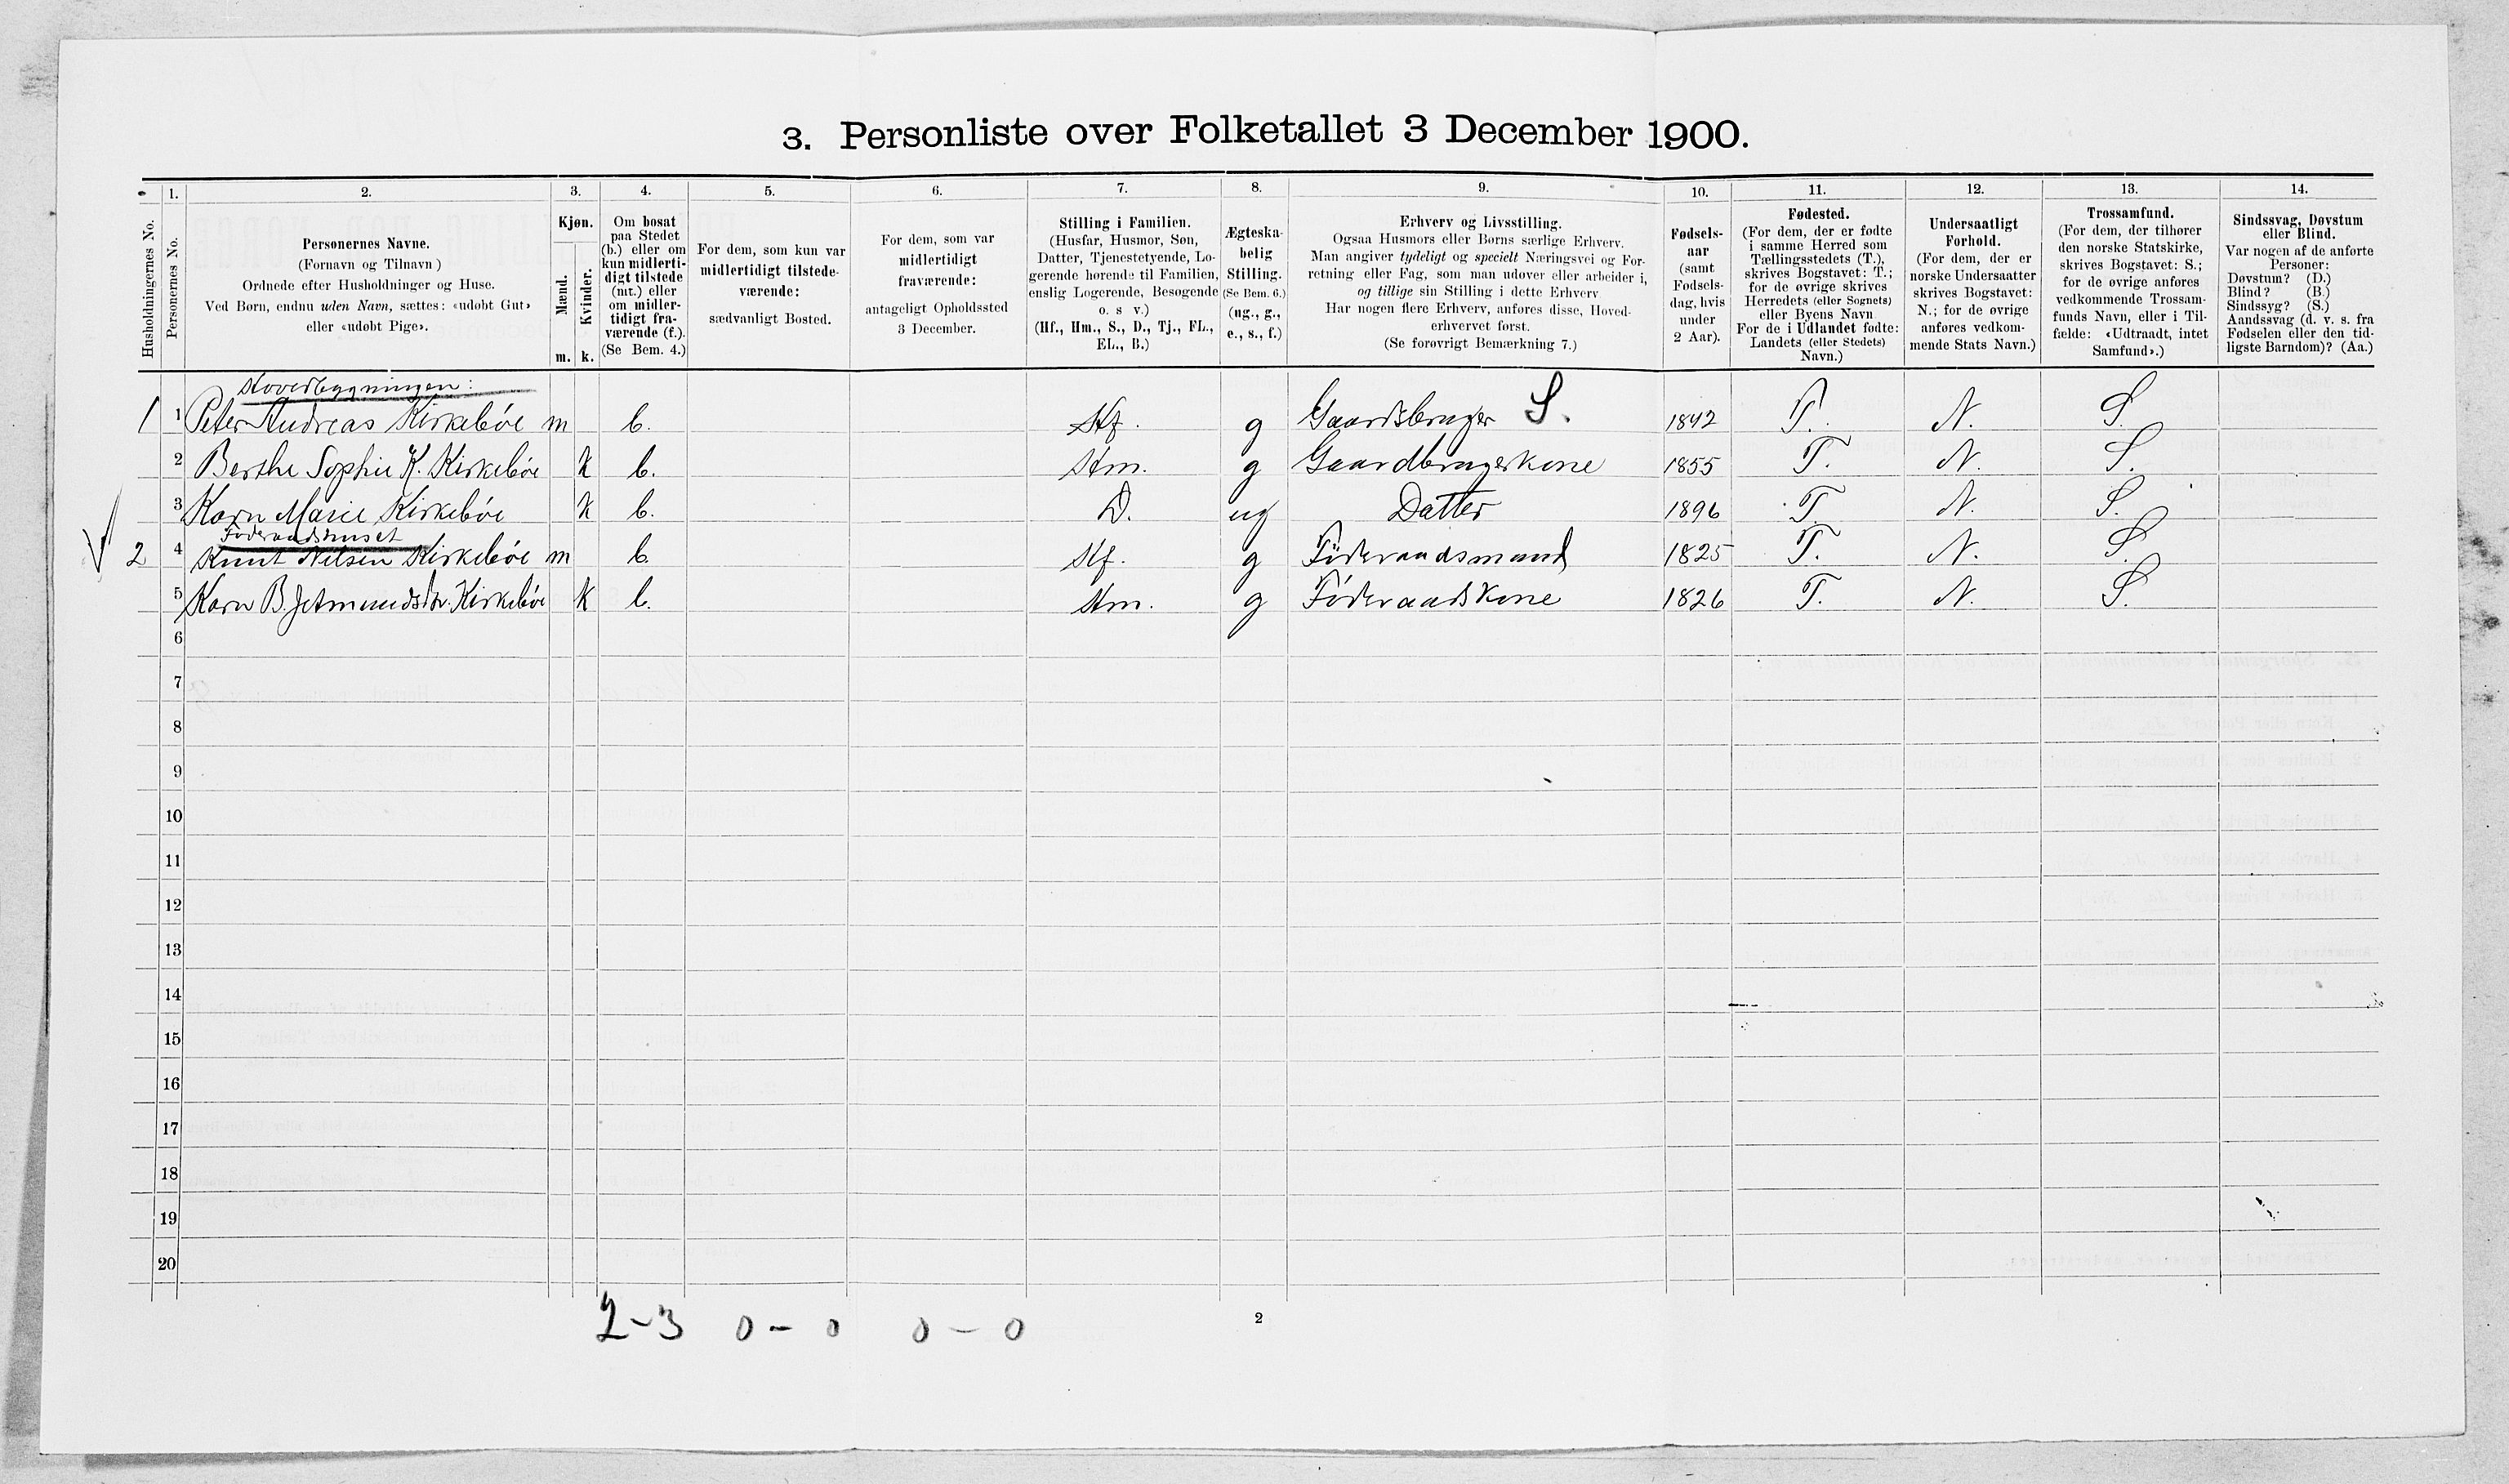 3. Personliste over Folketallet 3 December 1900.
1. 2. 3. 4. 5. 6. 7. 8. 9. 10. 11. 12. 13. 14.
Husholdningernes No.
Personernes No.
Personernes Navne.
(Fornavn og Tilnavn )
Ordnede efter Husholdninger og Huse.
Ved Børn, endnu uden Navn, sættes: «udøbt Gut»
eller «udøbt Pige».
Kjøn.
Mænd.
Kvinder.
m. k.
Om bosat
paa Stedet
(b.) eller om
kun midlerti-
digt tilstede
(mt.) eller
om midler-
tidigt fra-
værende (f.).
(Se Bem. 4.)
For dem, som kun var
midlertidigt tilstede-
værende:
sædvanligt Bosted.
For dem, som var
midlertidigt
fraværende:
antageligt Opholdssted
3 December.
Stilling i Familien.
(Husfar, Husmor, Søn,
Datter, Tjenestetyende, Lo-
gerende hørende til Familien,
enslig Logerende, Besøgende
o. s v.)
(Hf., Hm., S., D., Tj., FL.,
EL., B.)
Ægteska-
belig
Stilling.
(Se Bem. 6.)
(ug., g.,
e., s., f.)
Erhverv og Livsstilling.
Ogsaa Husmors eller Børns særlige Erhverv.
Man angiver tydeligt og specielt Næringsvei og For-
retning eller Fag, som man udøver eller arbeider i,
og tillige sin Stilling i dette Erhverv
Har nogen flere Erhverv, anføres disse, Hoved-
erhvervet først.
(Se forøvrigt Bemærkning 7.)
Fødsels-
aar
(samt
Fødsels-
dag, hvis
under
2 Aar).
Fødested.
(For dem, der er fødte
i samme Herred som
Tællingsstedets (T.),
skrives Bogstavet: T.;
for de øvrige skrives
Herredets (eller Sognets)
eller Byens Navn
For de i Udlandet fødte:
Landets (eller Stedets)
Navn.)
Undersaatligt
Forhold.
(For dem, der er
norske Undersaatter
skrives Bogstavet:
N.; for de øvrige
anføres vedkom-
mende Stats Navn.)
Trossamfund.
(For dem, der tilhører
den norske Statskirke,
skrives Bogstavet: S.;
for de øvrige anføres
vedkommende Trossam-
funds Navn, eller i Til-
fælde: «Udtraadt, intet
Samfund».)
Sindssvag, Døvstum
eller Blind.
Var nogen af de anførte
Personer:
Døvstum? (D.)
Blind? (B.)
Sindssyg? (S.)
Aandssvag (d. v. s. fra
Fødselen eller den tid-
ligste Barndom)? (Aa.)
Hovedbygningen:
1 1 Peter Andreas Kirkebøe m b. Hf. g Gaardsbruger S. 1842 T. N. S.
2 Berthe Sophie K. Kirkebøe k b. Hm. g Gaardbrugerkone 1855 T. N. S.
3 Karn Marie Kirkebøe k b. D. ug Datter 1896 T. N. S.
Føderaadshuset
2 4 Knut Nilsen Kirkebøe m b. Hf. g Føderaadsmand 1825 T. N. S.
5 Karn B. Kirkebøe k b. Hm. g Føderaadskone 1826 T. N. S.
6
7
8
9
10
11
12
13
14
15
16
17
18
19
20
2-3 0-0 0-0
2